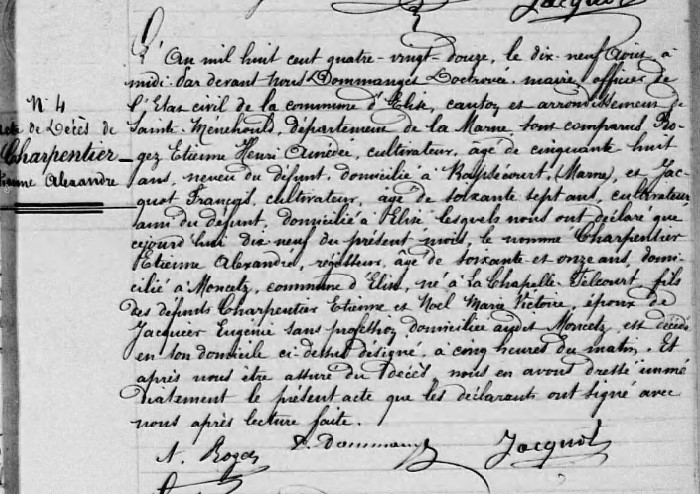 Jacquot
L'An mil huit cent quatre-vingt-douze, le dix-neuf Août à
midi. Par devant nous Dommanget Doctrovée, maire, officier de
l'Etat civil de la commune d'Elise, canton et arrondissement de
Sainte-Ménehould, département de la Marne, sont comparus Ro-
gez Etienne Henri Amédée, cultivateur, âgé de cinquante huit
ans, neveu du défunt, domicilié à (Marne), et Jac-
quot François, cultivateur, âgé de soixante sept ans, cultivateur
ami du défunt, domicilié à Elise lesquels nous ont déclaré que
cejourd'hui dix neuf du présent mois, le nommé Charpentier
Etienne Alexandre, régisseur, âgé de soixante et onze ans, domi-
cilié à Moncetz, commune d'Elise, né à La Chapelle-Felcourt, fils
des défunts Charpentier Etienne et Noel Marie Victoire, époux de
Jacquier Eugénie sans profession domiciliée audit Moncetz, est décédé
en son domicile ci-dessus désigné, à cinq heures du matin. Et
après nous être assuré du décès, nous en avons dressé immé-
diatement le présent acte que les déclarants ont signé avec
nous après lecture faite.
N° 4
acte de Décès de
Charpentier
Etienne Alexandre
A. Rogez D. Dommanget Jacquot